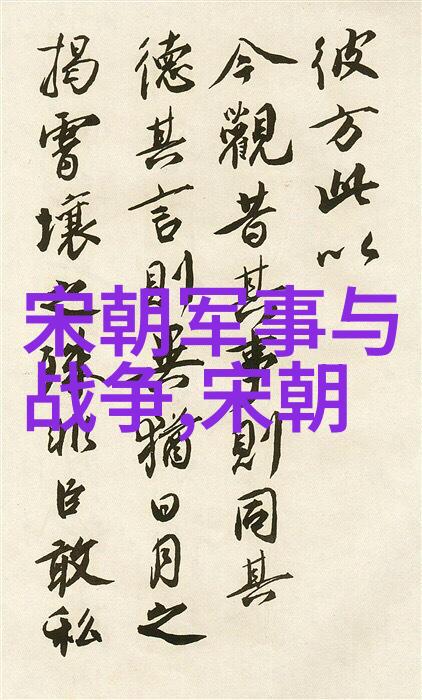 彼方此以
今觀昔其事則同其
德其言則異猶日月之
揭霄壤之殊非臣敢私
宋朝军事与
战争,宋朝